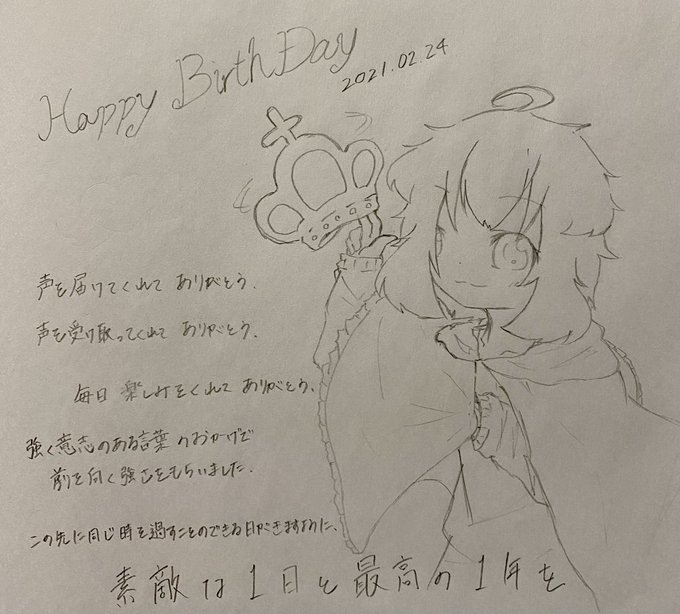 Happy BirthDay
2021.02.24
声を届けてくれて ありがとう.
声を受け取ってくれて ありがとう.
毎日 楽しみをくれて ありがとう.
強く意志のある言葉のおかげで
前を向く強さをもらいました.
この先に同じ時を過すことのできる日がきますように、
素敵な1日と最高の1年を